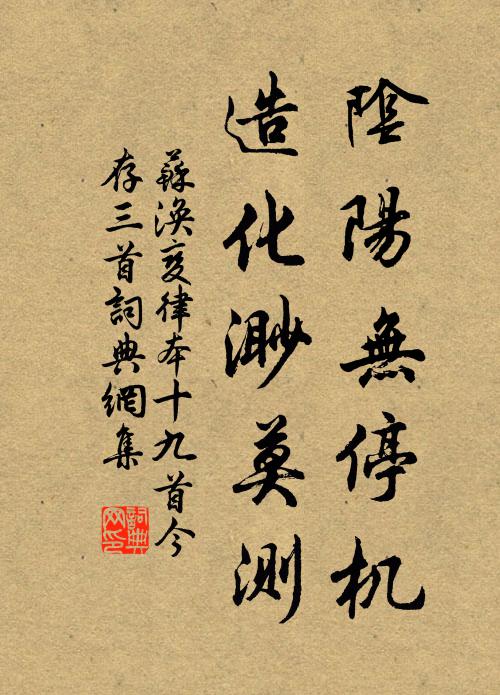 陰陽無停机
造化渺莫測
蘇渙變律本十九首今
存三首詞典網集
詞典
网印